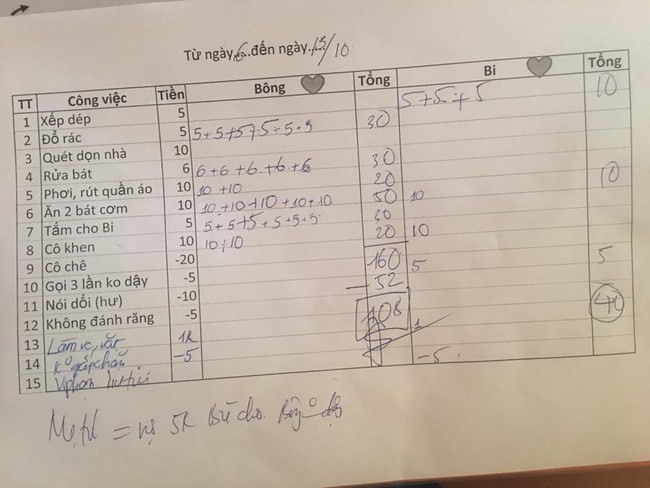 Từ ngày 6 đến ngày 13/10
TT Công việc Tiền Bông Tổng Bi Tổng
1 Xếp dép 5 5+5+5 10
2 Đổ rác 5 5+5+5+5+5+5 30
3 Quét dọn nhà 10
4 Rửa bát 6 6+6+6+6+6 30
5 Phơi, rút quần áo 10 10+10 20 10
6 Ăn 2 bát cơm 10 10+10+10+10+10 50 10
7 Tắm cho Bi 5 5+5+5+5+5+5 30
8 Cô khen 10 10+10 20 10
9 Cô chê -20 160 5 5
10 Gọi 3 lần ko dậy -5 -52
11 Nói dối (hư) -10 108 40
12 Không đánh răng -5
13 Làm vc vặt 1k 1
14 K gấp chăn -5 -5
15
= nợ 5k cho